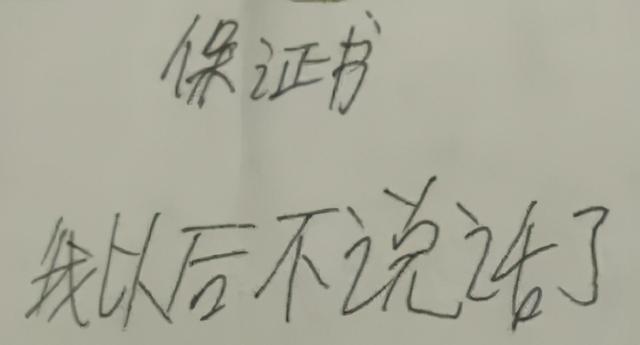 保证书
我以后不说话了